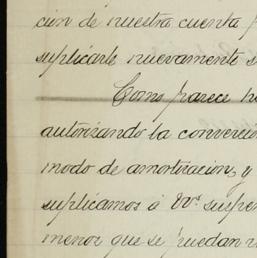 cion de nuestra cuenta
suplicarle nuevamente
Como parece
autorizando la conversio
modo de amortizacion, y
suplicamos á Vs. suspen
menor que se puedan